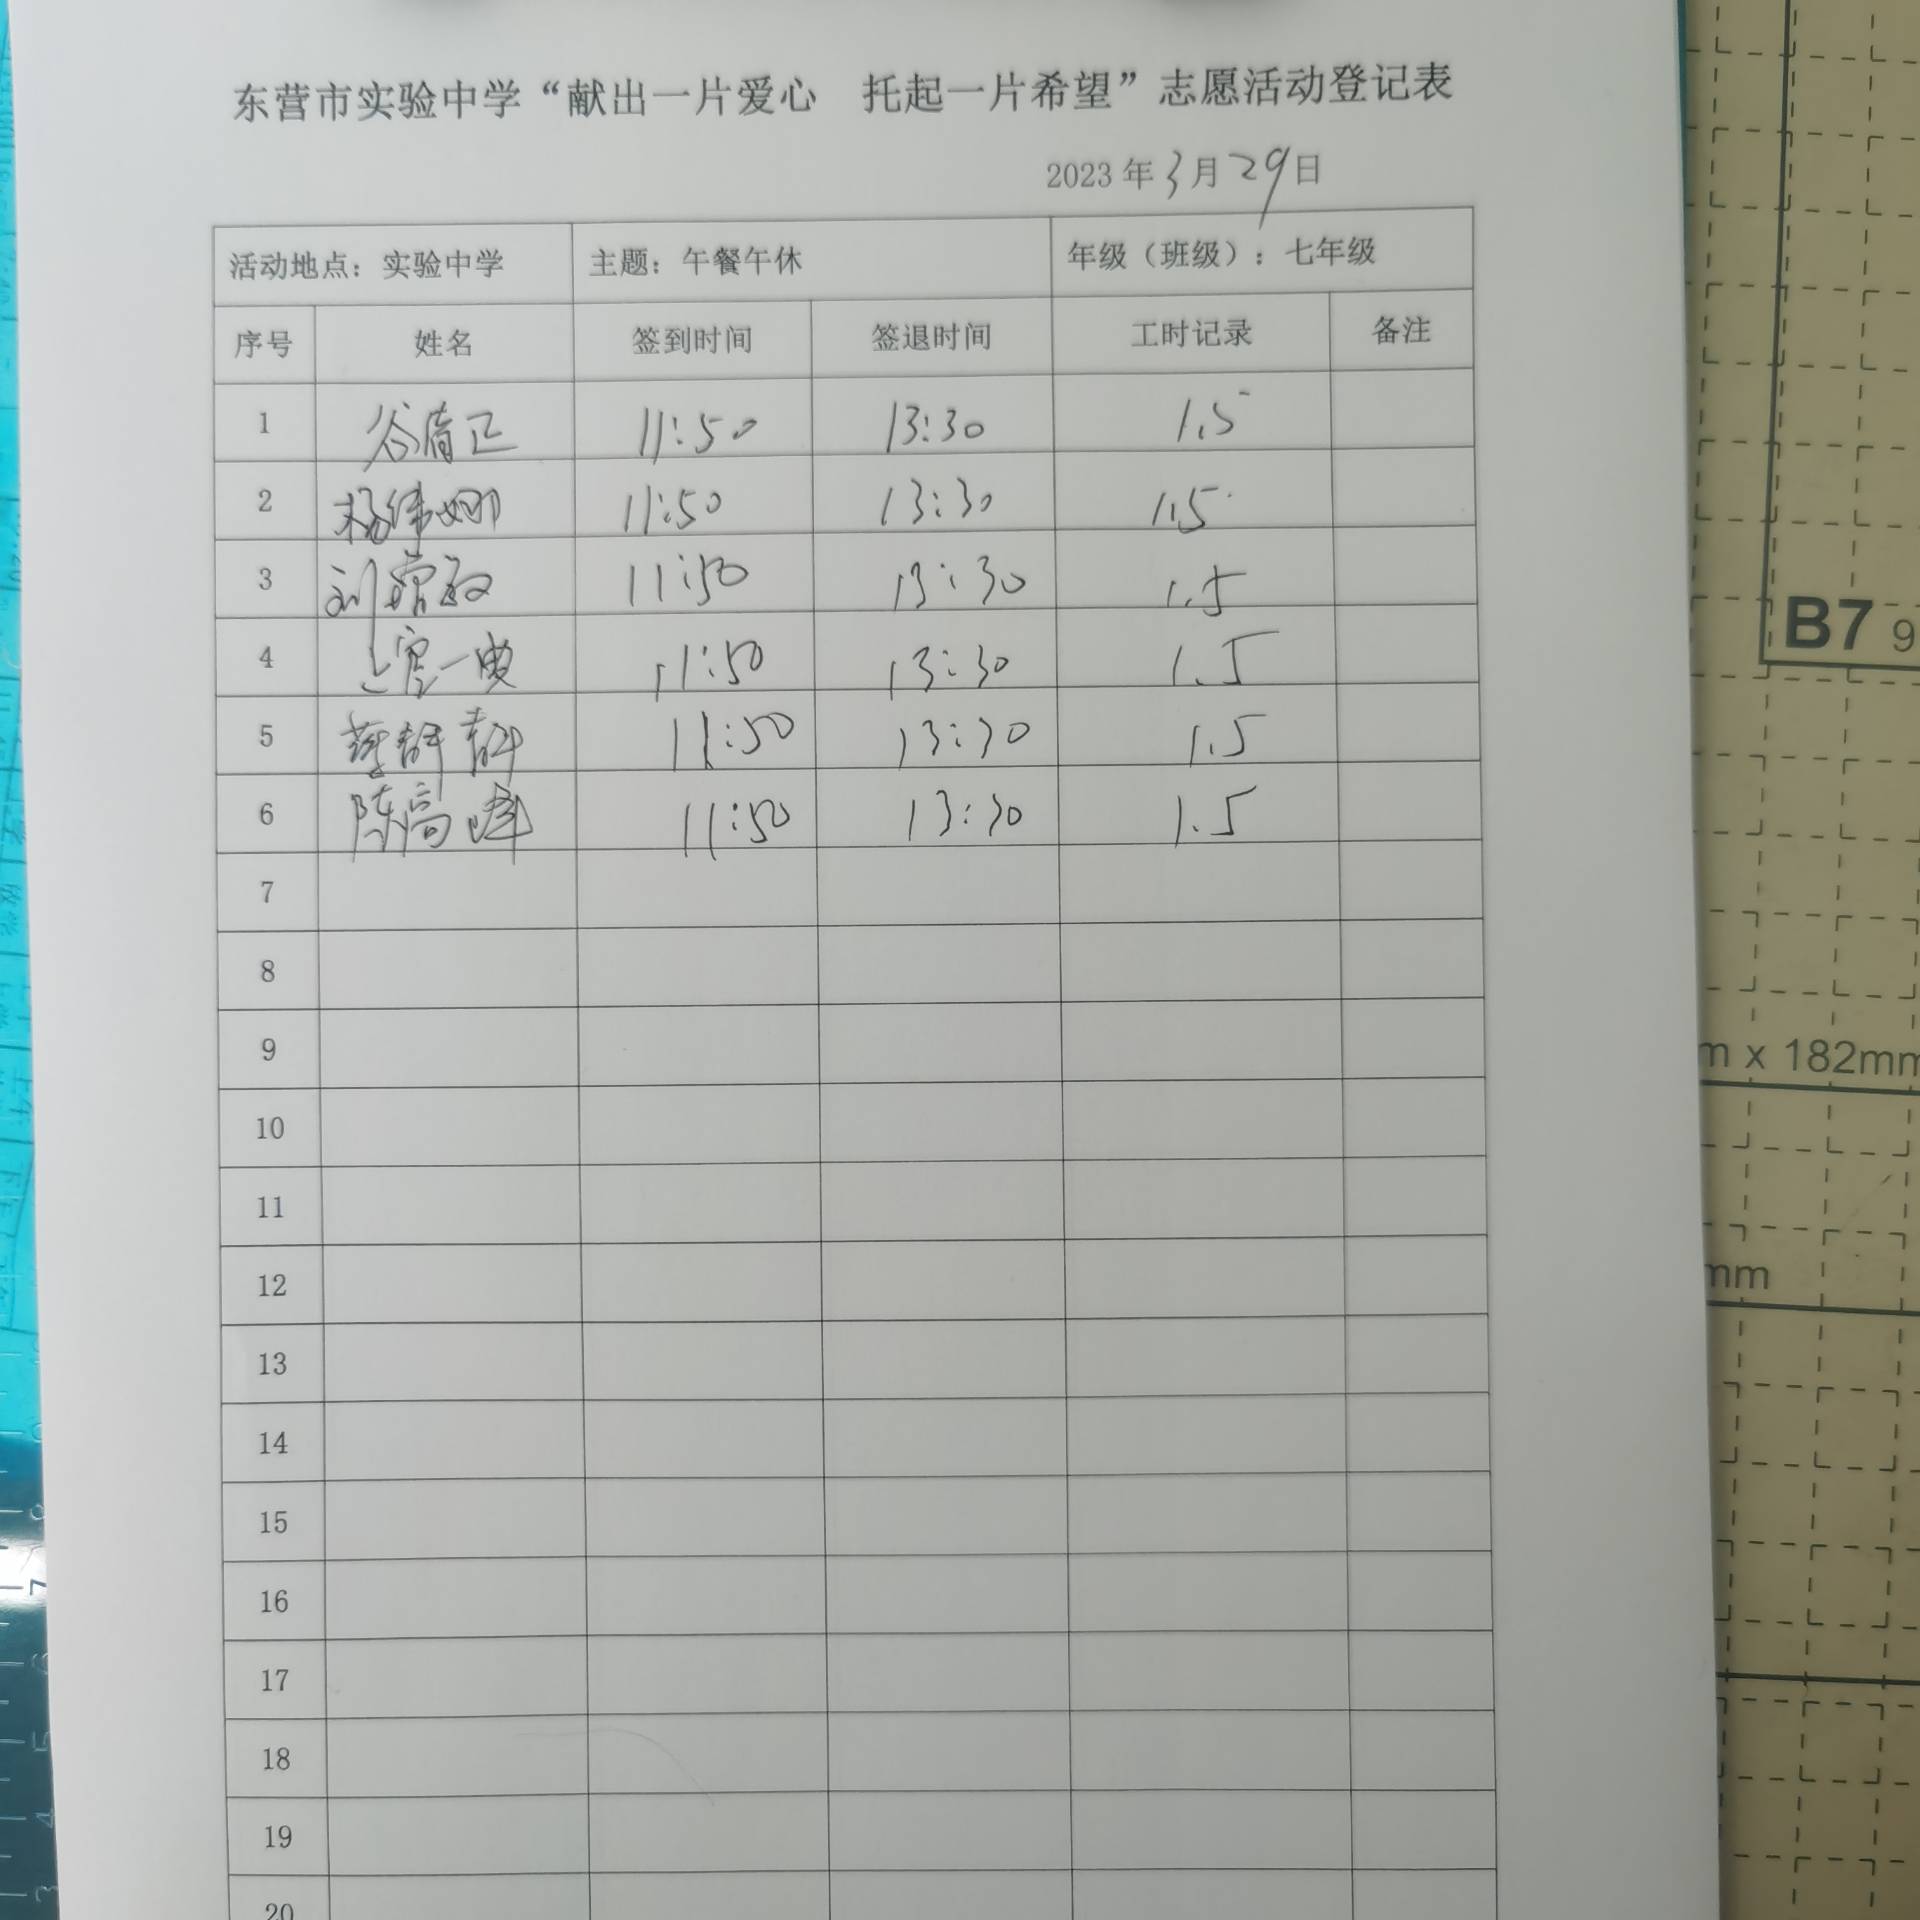 东营市实验中学“献出一片爱心 托起一片希望”志愿活动登记表
2023年3月29日
活动地点：实验中学 主题：午餐午休 年级（班级）：七年级
序号 姓名 签到时间 签退时间 工时记录 备注
1 谷 正 11:50 13:30 1.5
2 杨伟娜 11:50 13:30 1.5
3 刘 敏 11:50 13:30 1.5
4 一 11:50 13:30 1.5
5 薛静静 11:50 13:30 1.5
6 陈高峰 11:50 13:30 1.5
7
8
9
10
11
12
13
14
15
16
17
18
19
20
B7 9
m x 182mm
mm